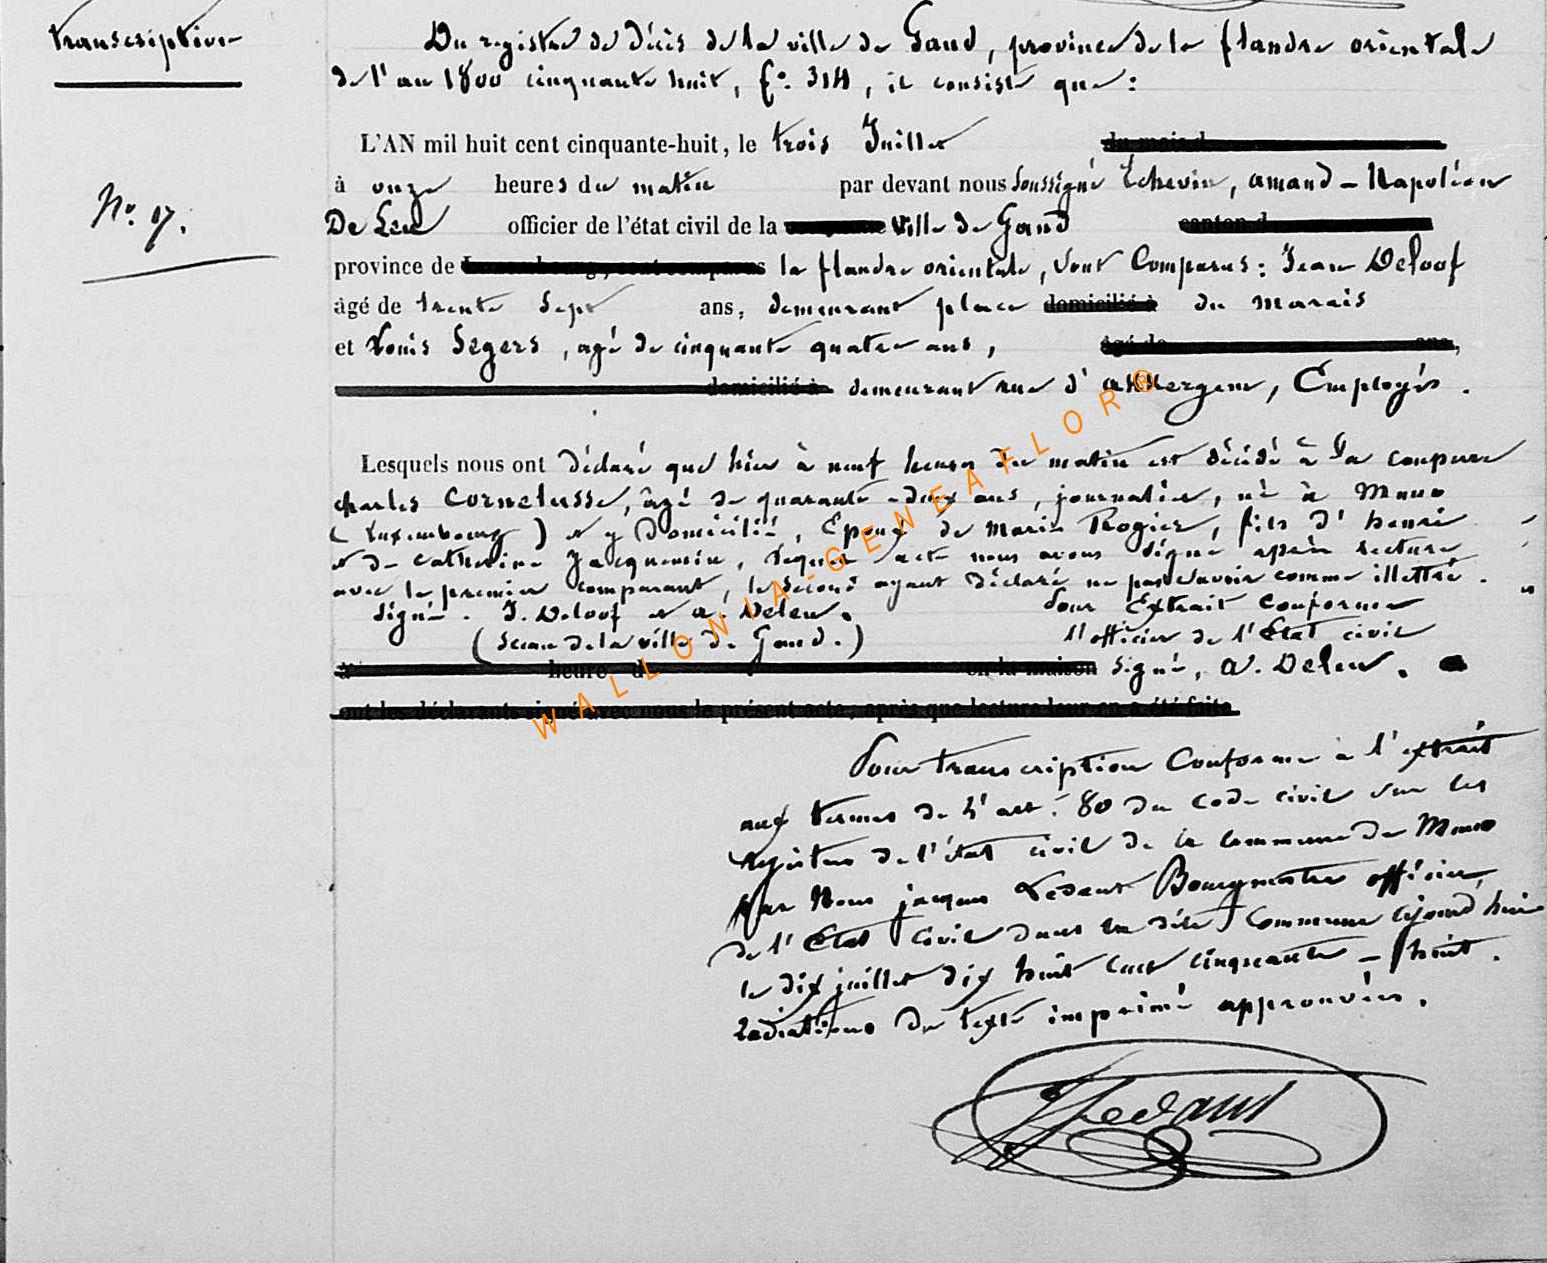 transcription
Du registre de décès de la ville de Gand, province de la flandre orientale
de l'an 1800 cinquante huit, f.° 314, il consiste que :
L'AN mil huit cent cinquante-huit, le trois Juillet
à onze heures du matin par devant nous soussigné Echevin, amand - Napoléon
N.° 17.
De Leu officier de l'état civil de la ville de Gand canton d
province de la flandre orientale, sont Comparus : Jean Deloof
âgé de trente sept ans, demeurant place domicilié à du Marais
et Louis Segers, agé de cinquante quatre ans,
domicilié à demeurant rue d' akkergem, Employés.
Lesquels nous ont déclaré que hier à neuf heures du matin est décédé à la coupure
charles Cornelusse, âgé de quarante-deux ans, journalier, né à
(Luxembourg) et y Domicilié, Epoux de Marie Rogier, fils d' henri
et de Catherine Jacquemin, duquel acte nous avons signé après lecture
avec le premier comparant, le second ayant déclaré ne pas savoir comme illettré.
signé. J. Deloof et A. Deleu. Pour Extrait conforme
(sceau de la ville de Gand.) l'officier de l'Etat civil
heure d en la maison signé, A. Deleu.
ont les déclarants signé avec nous le présent acte, après que lecture leur en a été faite
Pour transcription Conforme à l'extrait
aux termes de l'art. 80 du code civil sur les
registres de l'état civil de la commune de
Par Nous jacques Ledent Bourgmestre officier
de l'Etat Civil dans la dite Commune
le dix juillet dix huit cent cinquante - huit.
Radiations du texte imprimé approuvées.
WALLONIA-GENEAFLOR®